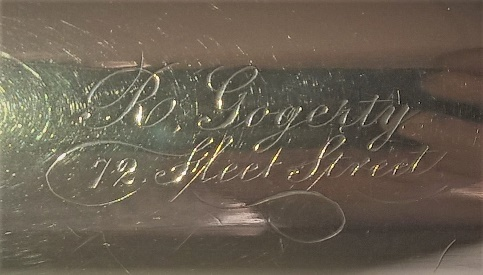 R. Gogerty
72 Fleet Street